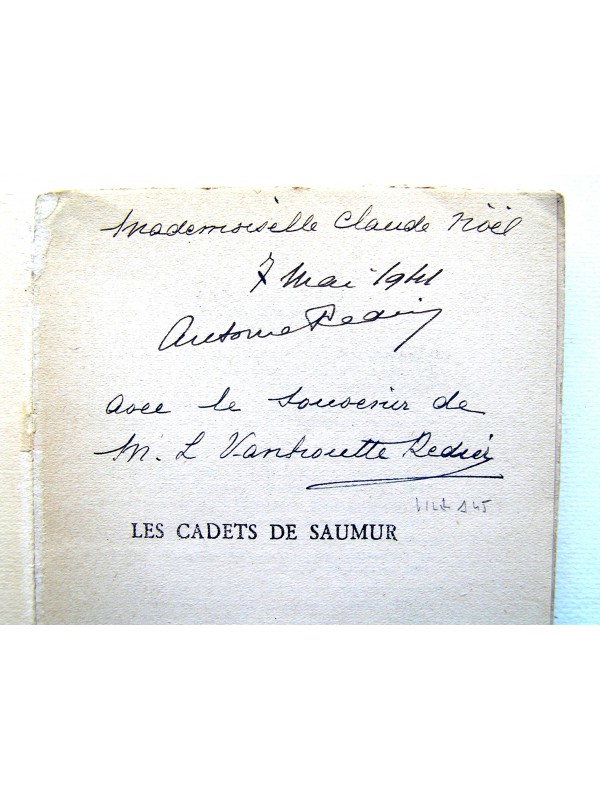 Mademoiselle Claude Nöel
7 Mai 1941
Antoine Redier
avec le souvenir de
M. L Vanhoutte Redier
LES CADETS DE SAUMUR